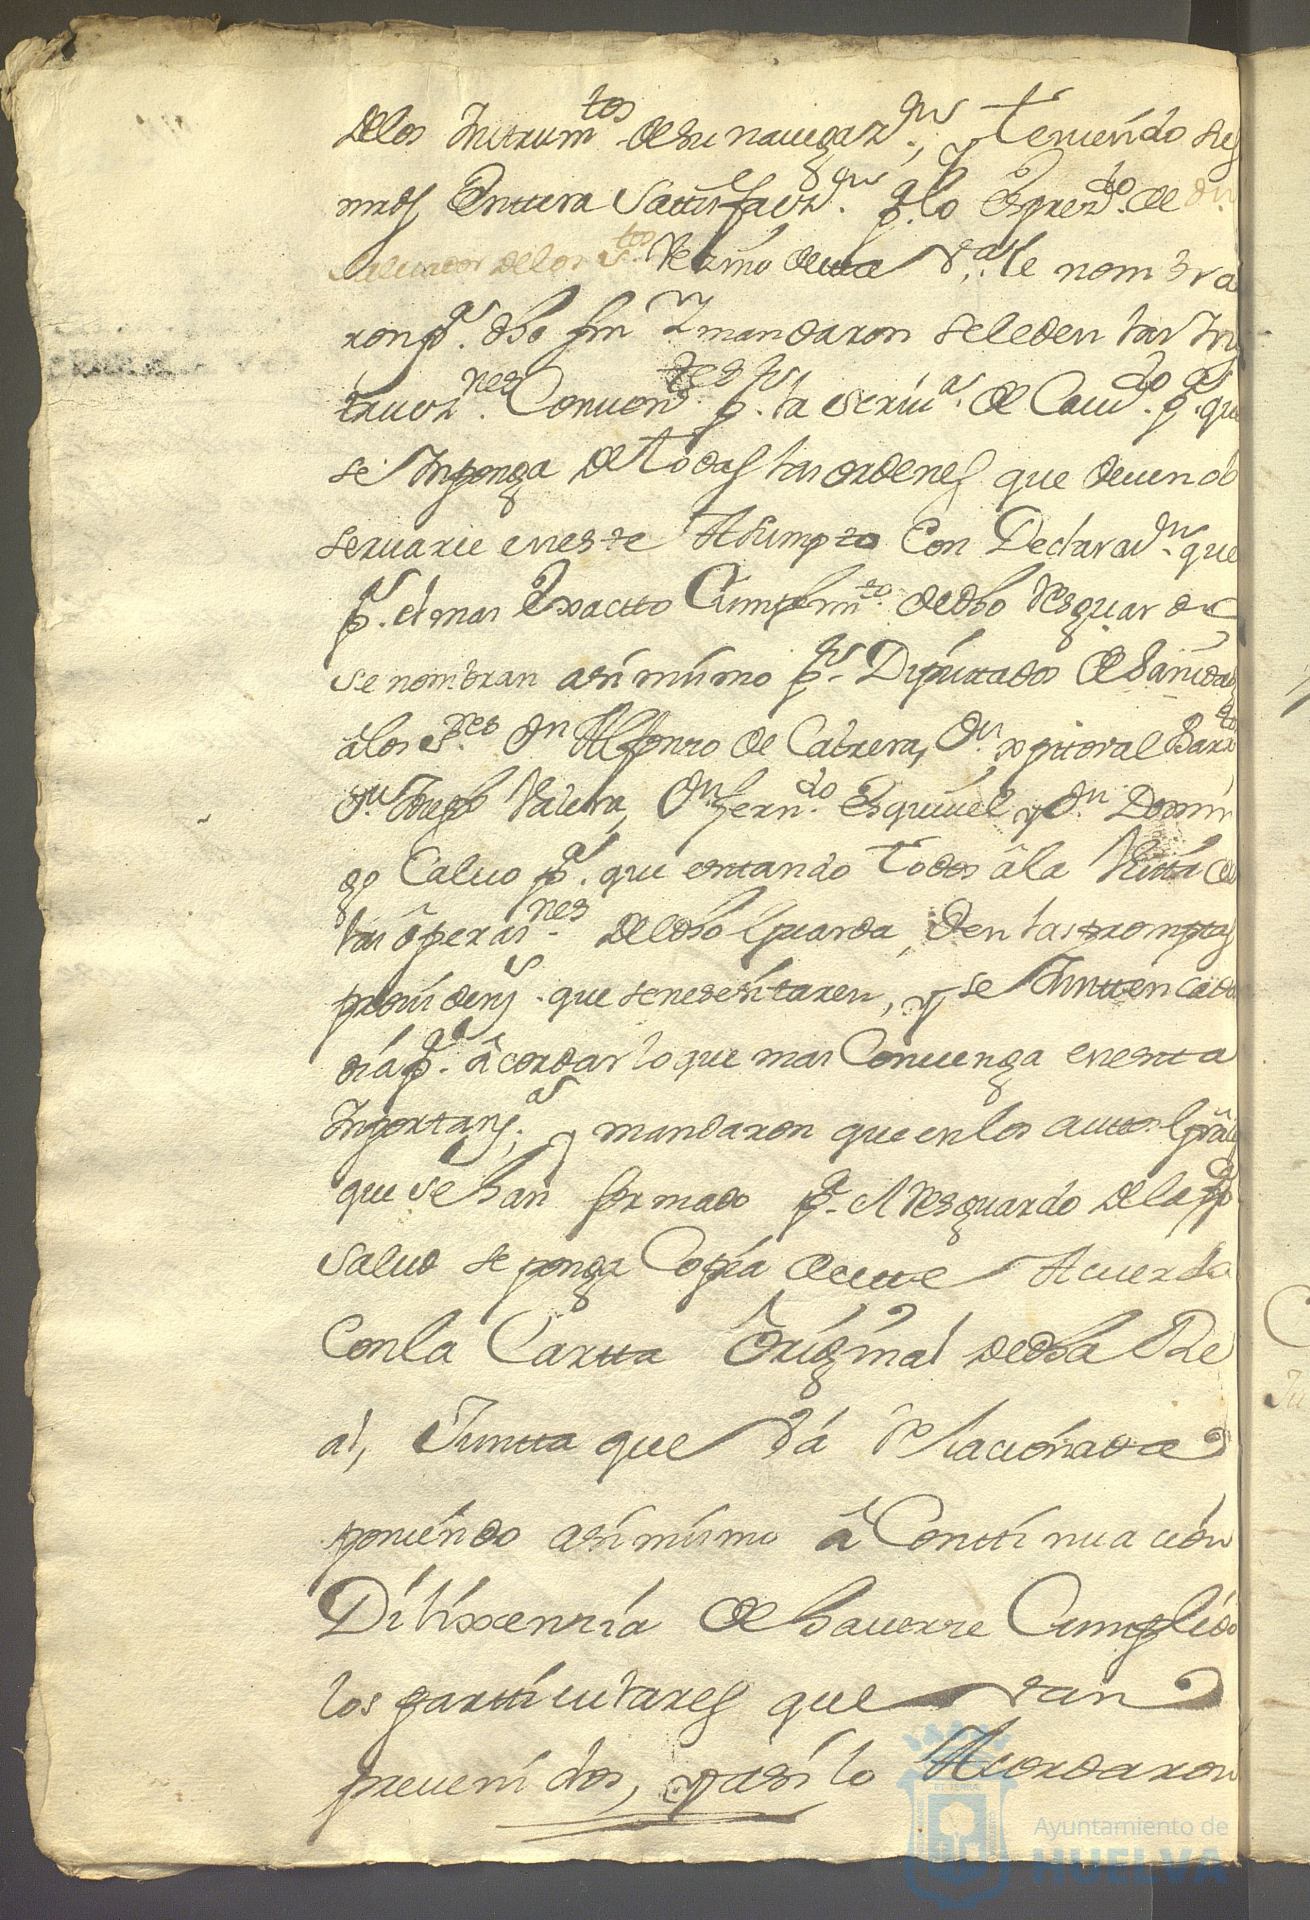 delos Instrum.tos desu nauegaz.on, y Teniendo sus
mrds Enttera sattisfaczn. pr lo Expres.do de Dn
Saluador delos S.tos Vezino de esta v.a le nombra
ron p.a dho fin Y mandaron seleden las Ins
truczi.nes Conuen.tes pr la escriu.a de Cau.do p.a que
se Inponga de todas las ordenes que deuen ob
seruarse eneste Asumpto Con Declaraz.on que
p.a el mas Exactto Cumplim.to de dho Resguardo
se nombran asi mismo pr Diputados de sanidad
â los S.res Dn Alfonso de Cabrera, Dn Xptoval Barr.tos
Dn Diego Valera, Dn Fern.do Esquiuel y Dn Domin
go Caluo p.a que estando Todos â la Vista de
las ôperasi.nes de dho Guarda, den las promptas
prouidens.s que se nesesitaren, y se Juntten cada
dia p.a âcordar lo que mas Conuenga enesta
Inportans.a; y mandaron que en los auttos Grâles
que se han formado p.a el Resguardo de la pp.a
salud se ponga Copia de este Acuerdo
Con la Cartta Original de dha Re
al, Juntta que vá Relacionada
poniendo asi mismo â Conttinuacion
Dilixensia de hauerse Cumplido
los partticulares que van
preuenidos, y asi lo Acordaron
Ayuntamiento de
HUELVA